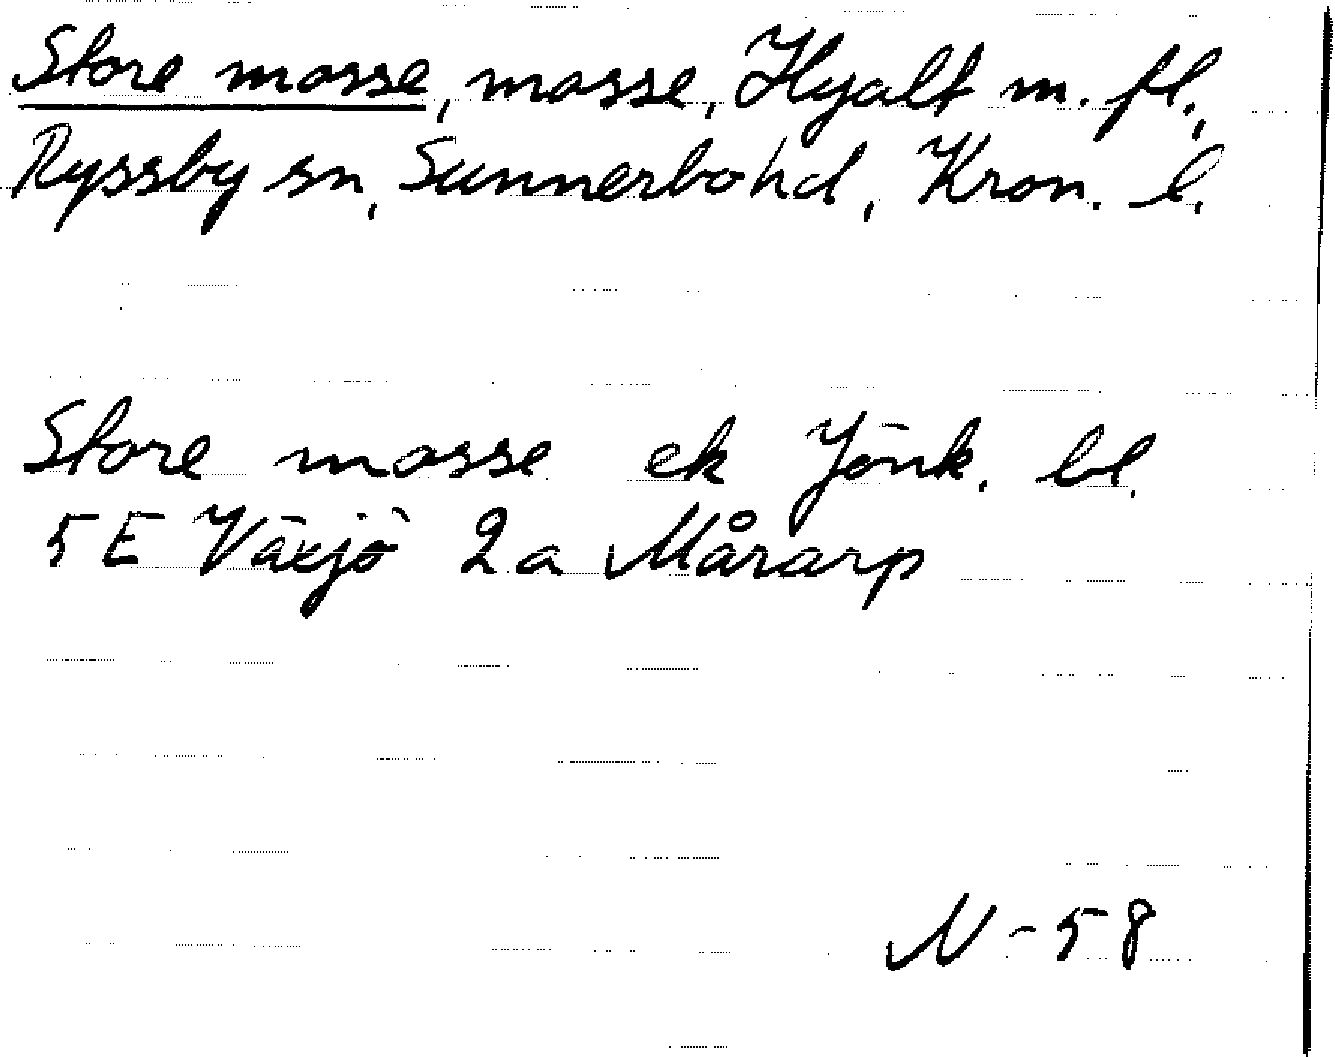 Store mosse, mosse, Hyalt m. fl.,
Ryssby sn, Sunnerbo hd, Kron. l.
Store mosse ek Jönk. bl.
5E Växjö 2a Mårarp
N-58